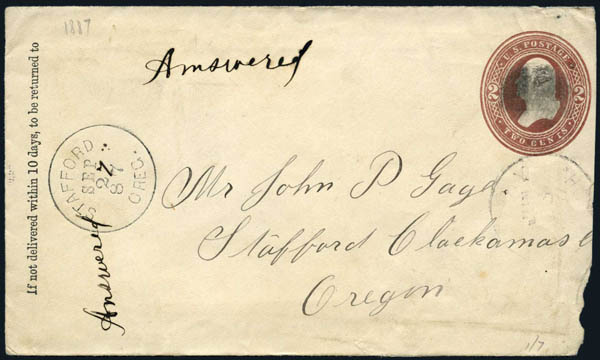 1887
If not delivered within 10 days, to be returned to
Answered
U.S. POSTAGE
2 2
TWO CENTS
STAFFORD
SEP
27
87
OREG.
Answered
Mr John P Gage
Stafford Clackamas C
Oregon
1/7